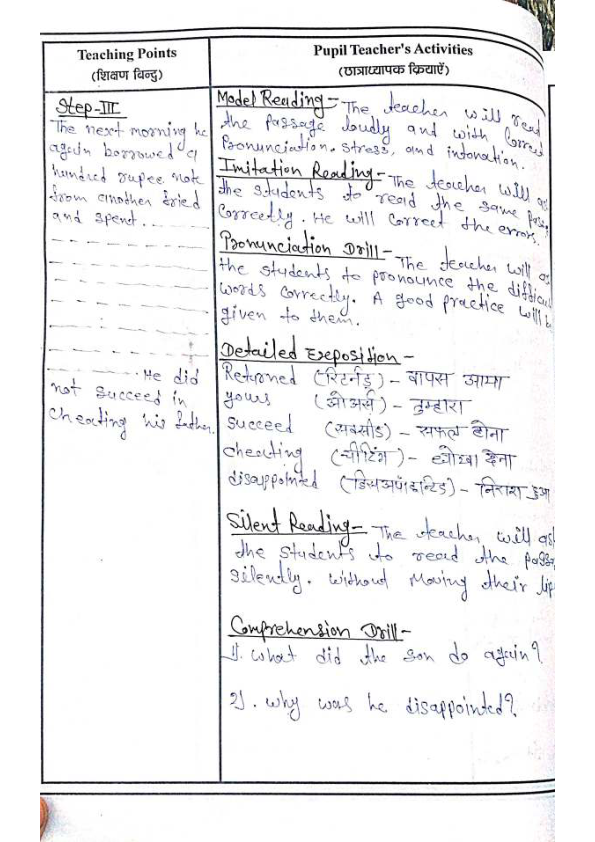 Teaching Points
(शिक्षण बिन्दु)
Pupil Teacher's Activities
(छात्राध्यापक क्रियाएँ)
Step-III
The next morning he
again borrowed a
hundred rupee note
from another fried
and spent.
He did
not succeed in
cheating his father.
Model Reading- The teacher will read
the passage loudly and with correct
Pronunciation. stress, and intonation.
Imitation Reading- The teacher will as
the students to read the same passag
Correctly. He will correct the errors.
Pronunciation Drill- The teacher will as
the students to pronounce the difficul
words correctly. A good practice will b
given to them.
Detailed Exeposition-
Returned (रिटर्नड्) - वापस आया
yours (योअर्स) - तुम्हारा
succeed (सक्सीड) - सफल होना
cheating (चीटिंग) - धोखा देना
disappointed - निराश हुआ
Silent Reading- The teacher will as
the students to read the passa
silently. without moving their lip
Comprehension Drill-
1). what did the son do again?
2). why was he disappointed?